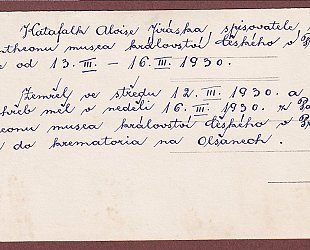 Katafalk Aloise Jiráska, spisovatele,
ntheonu musea království českého v P
e od 13. III. – 16. III. 1930.
Zemřel ve středu 12. III. 1930. a
hřeb měl v neděli 16. III. 1930. z Pa
heonu musea království českého v Pr
do krematoria na Olšanech.